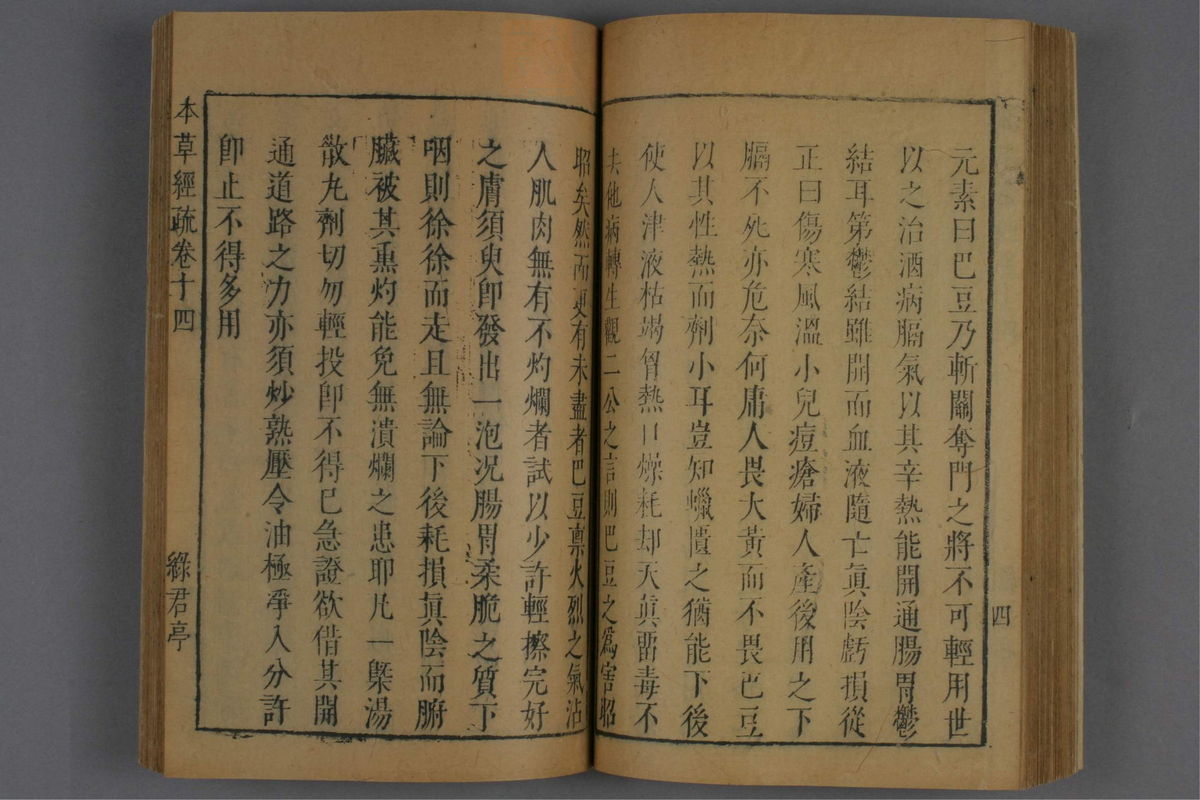 元素曰巴豆乃斬關奪門之將不可輕用世
以之治酒病膈氣以其辛熱能開通腸胃鬱
結耳第鬱結雖開而血液隨亡眞陰虧損從
正曰傷寒風溫小兒痘瘡婦人產後用之下
膈不死亦危奈何庸人畏大黃而不畏巴豆
以其性熱而劑小耳豈知蠟匱之猶能下後
使人津液枯竭胷熱口燥耗却天眞畱毒不
去他病轉生觀二公之言則巴豆之爲害昭
昭矣然而更有未盡者巴豆禀火烈之氣沾
人肌肉無有不灼爛者試以少許輕擦完好
之膚須臾卽發出一泡况腸胃柔脆之質下
咽則徐徐而走且無論下後耗損眞陰而腑
臟被其熏灼能免無潰爛之患耶凡一槩湯
散丸劑切勿輕投卽不得已急證欲借其開
通道路之力亦須炒熟壓令油極凈入分許
卽止不得多用
本草經疏卷十四
綠君亭
四